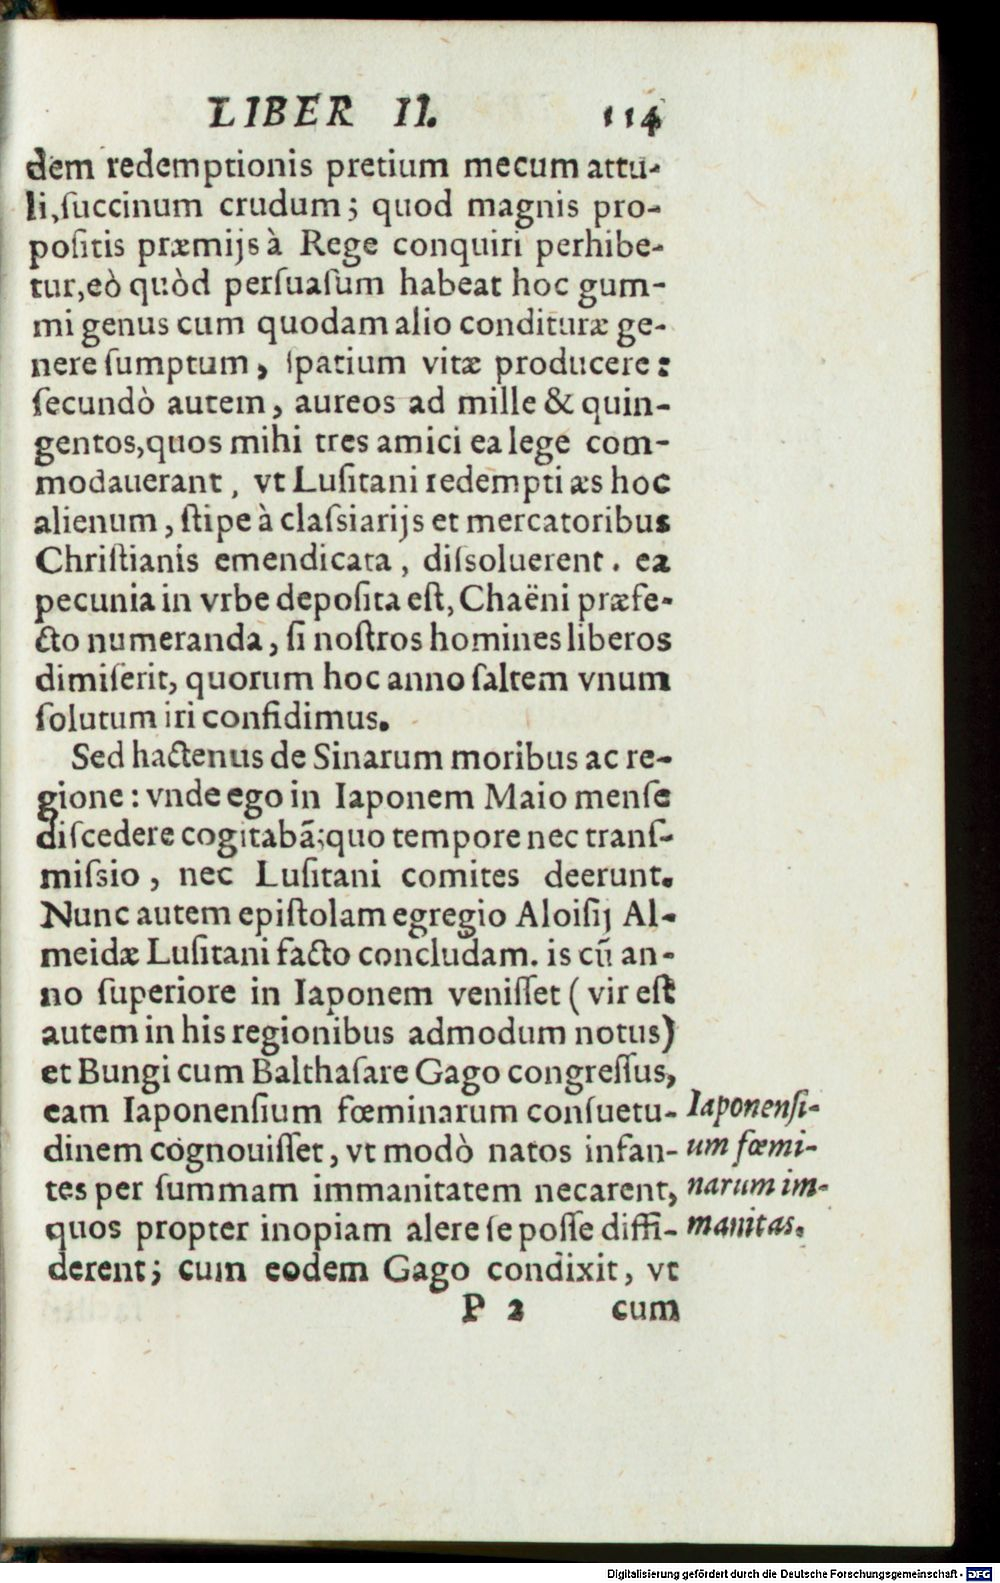 LIBER II. 114
dem redemptionis pretium mecum attu-
li, ſuccinum crudum; quod magnis pro-
poſitis præmijs à Rege conquiri perhibe-
tur, eò quòd perſuaſum habeat hoc gum-
mi genus cum quodam alio condituræ ge-
nere ſumptum, ſpatium vitæ producere:
ſecundò autem, aureos ad mille & quin-
gentos, quos mihi tres amici ea lege com-
modauerant, vt Luſitani redempti æs hoc
alienum, ſtipe à claſsiarijs et mercatoribus
Chriſtianis emendicata, diſsoluerent. ea
pecunia in vrbe depoſita eſt, Chaëni præfe-
cto numeranda, ſi noſtros homines liberos
dimiſerit, quorum hoc anno ſaltem vnum
ſolutum iri confidimus.
Sed hactenus de Sinarum moribus ac re-
gione: vnde ego in Iaponem Maio menſe
diſcedere cogitabā; quo tempore nec tranſ-
miſsio, nec Luſitani comites deerunt.
Nunc autem epiſtolam egregio Aloiſij Al-
meidæ Luſitani facto concludam. is cū an-
no ſuperiore in Iaponem veniſſet (vir eſt
autem in his regionibus admodum notus)
et Bungi cum Balthaſare Gago congreſſus,
eam Iaponenſium fœminarum conſuetu-
dinem cognouiſſet, vt modò natos infan-
tes per ſummam immanitatem necarent,
quos propter inopiam alere ſe poſſe diffi-
derent; cum eodem Gago condixit, vt
P 2 cum
Iaponenſi-
um fœmi-
narum im-
manitas.
Digitalisierung gefördert durch die Deutsche Forschungsgemeinschaft - DFG